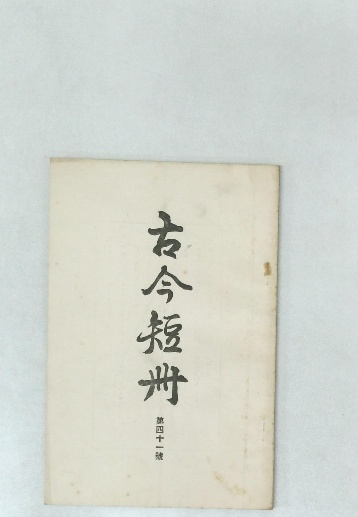 古今短冊
第四十一號